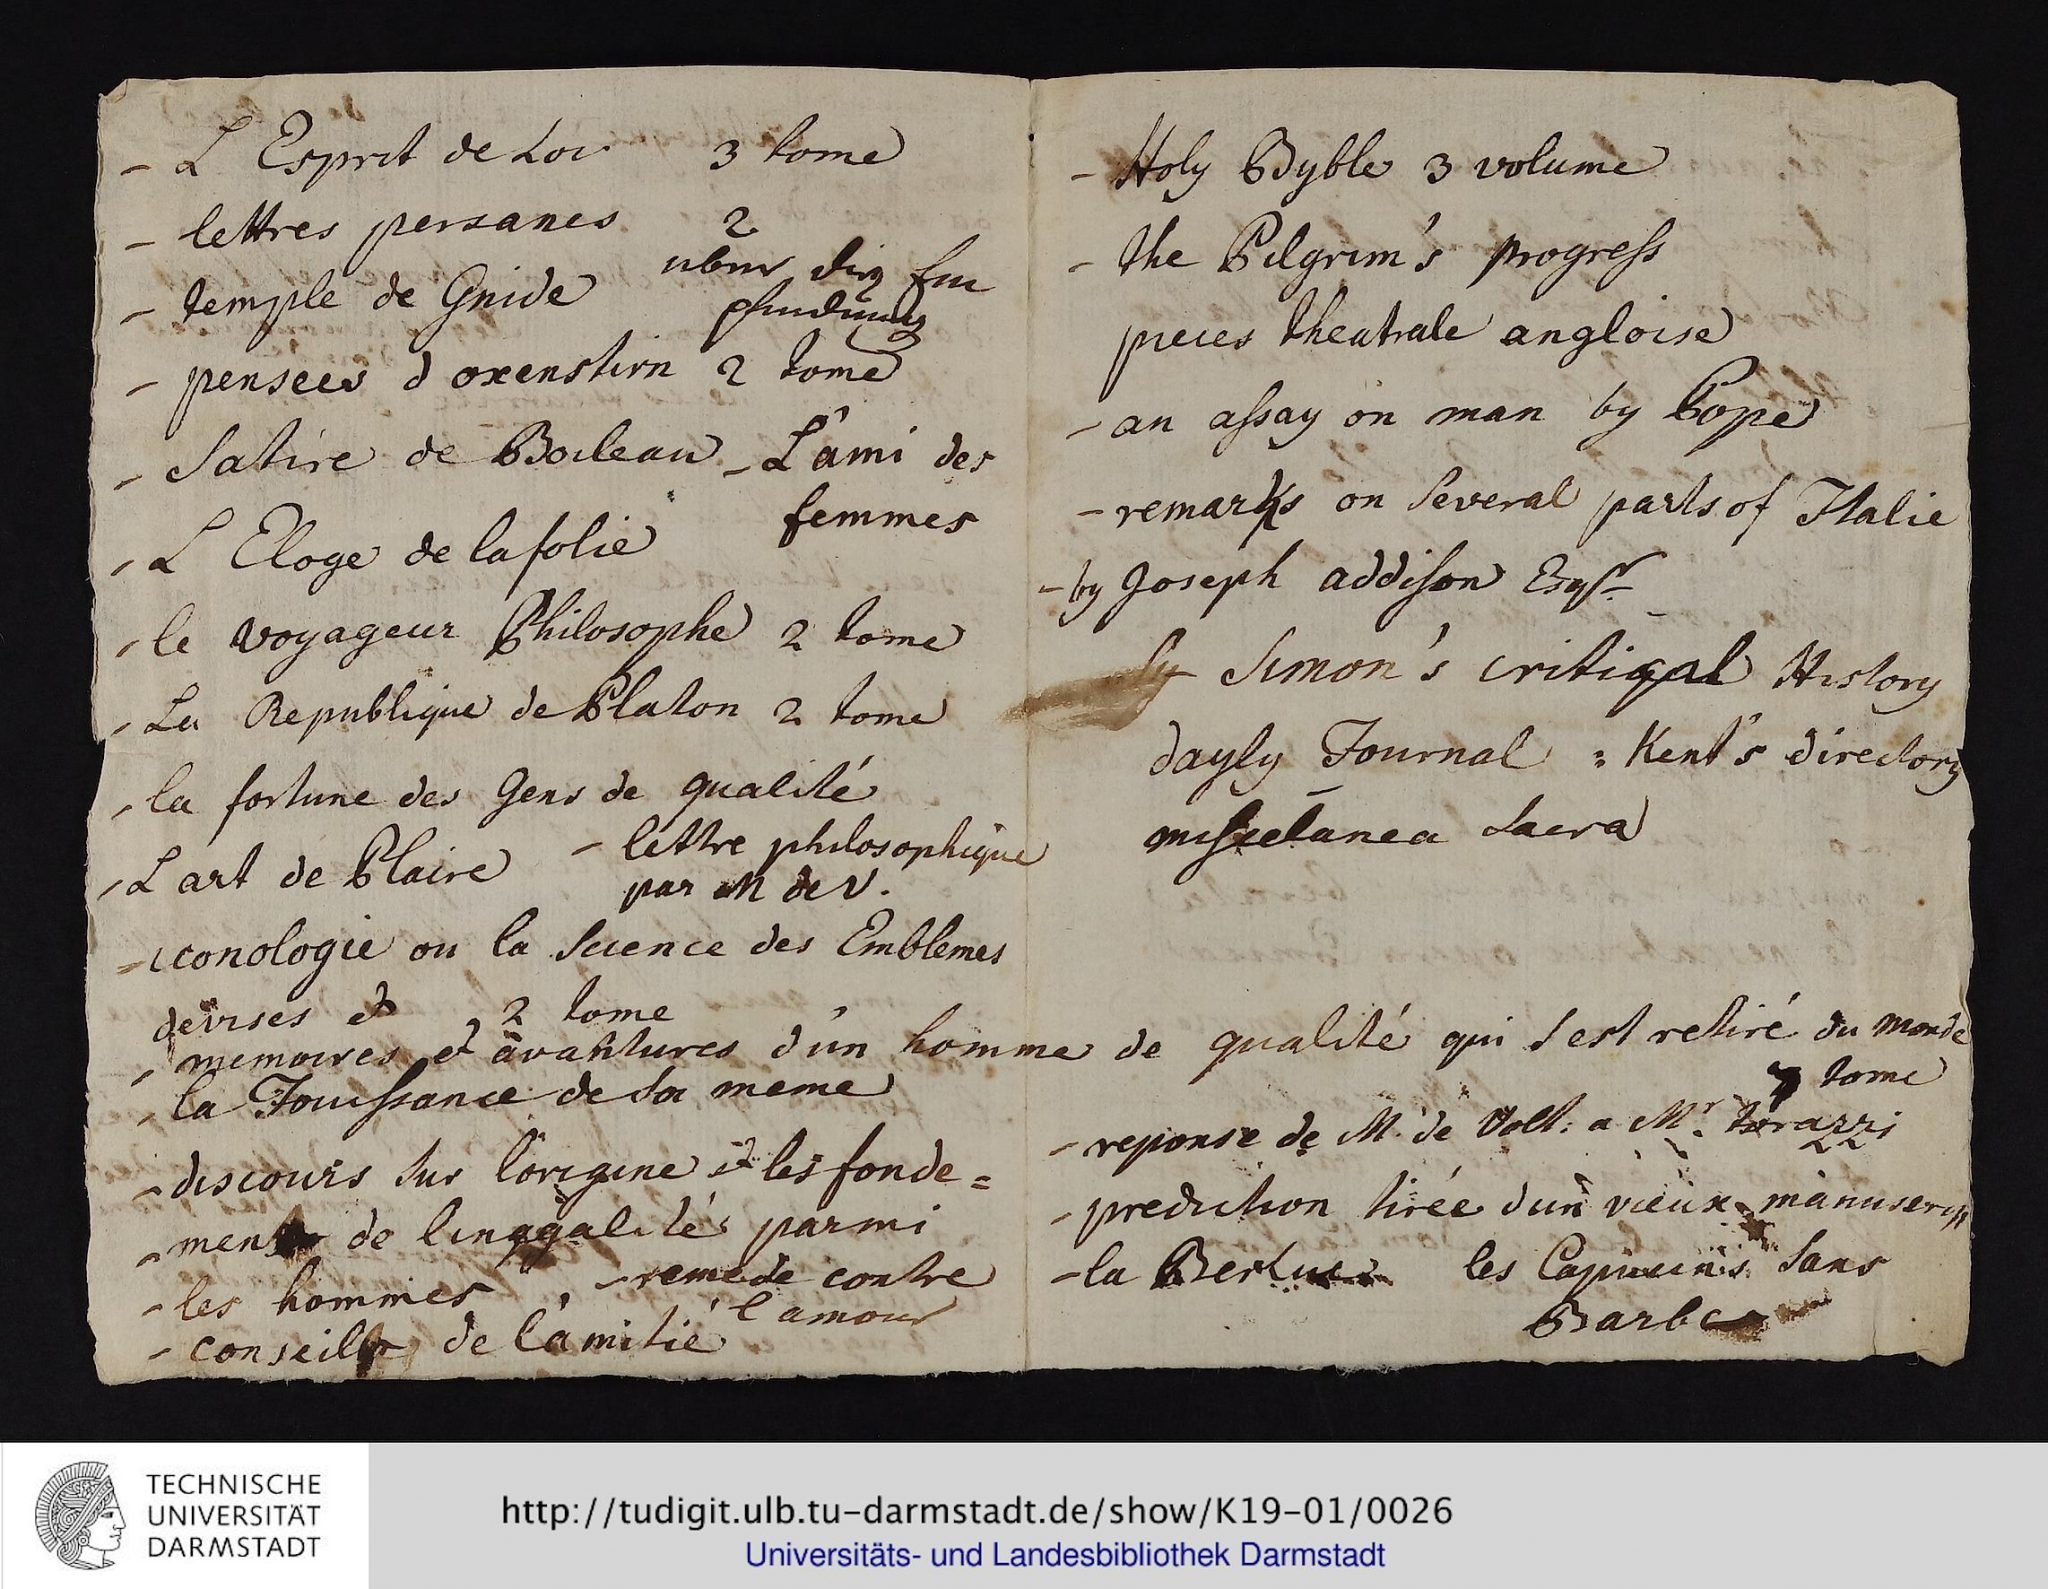 - L Esprit de Loi 3 tome
- lettres persanes 2
- temple de Gnide über die Em
pfindung
- pensees d oxenstirn 2 tome
- Satire de Boileau - L'ami des
femmes
- L Eloge de la folie
- le voyageur Philosophe 2 tome
- La Republique de Platon 2 tome
- la fortune des Gens de qualité
- L art de Plaire - lettre philosophique
par M de V.
- iconologie ou la Science des Emblemes
devises et 2 tome
- memoires et avantures d'un homme de qualité qui s est retiré du monde
7 tome
- la Jouissance de soi meme
- discours sur l'origine et les fonde=
- ments de l'inegalités parmi
- les hommes - remede contre
l amour
- conseils de l'amitié
- Holy Byble 3 volume
- the Pilgrim's progress
pieces theatrale angloise
- an assay on man by Pope
- remarks on Several parts of Italie
- by Joseph addison Esqr
Simon's critiqal History
dayly Journal : Kent's directory
miscelanea Sacra
- reponse de M. de Volt: a Mr. torazzi
- prediction tirée d'un vieux manuscrip
- la les Capucins Sans
Barbe
TECHNISCHE
UNIVERSITÄT
DARMSTADT
http://tudigit.ulb.tu-darmstadt.de/show/K19-01/0026
Universitäts- und Landesbibliothek Darmstadt